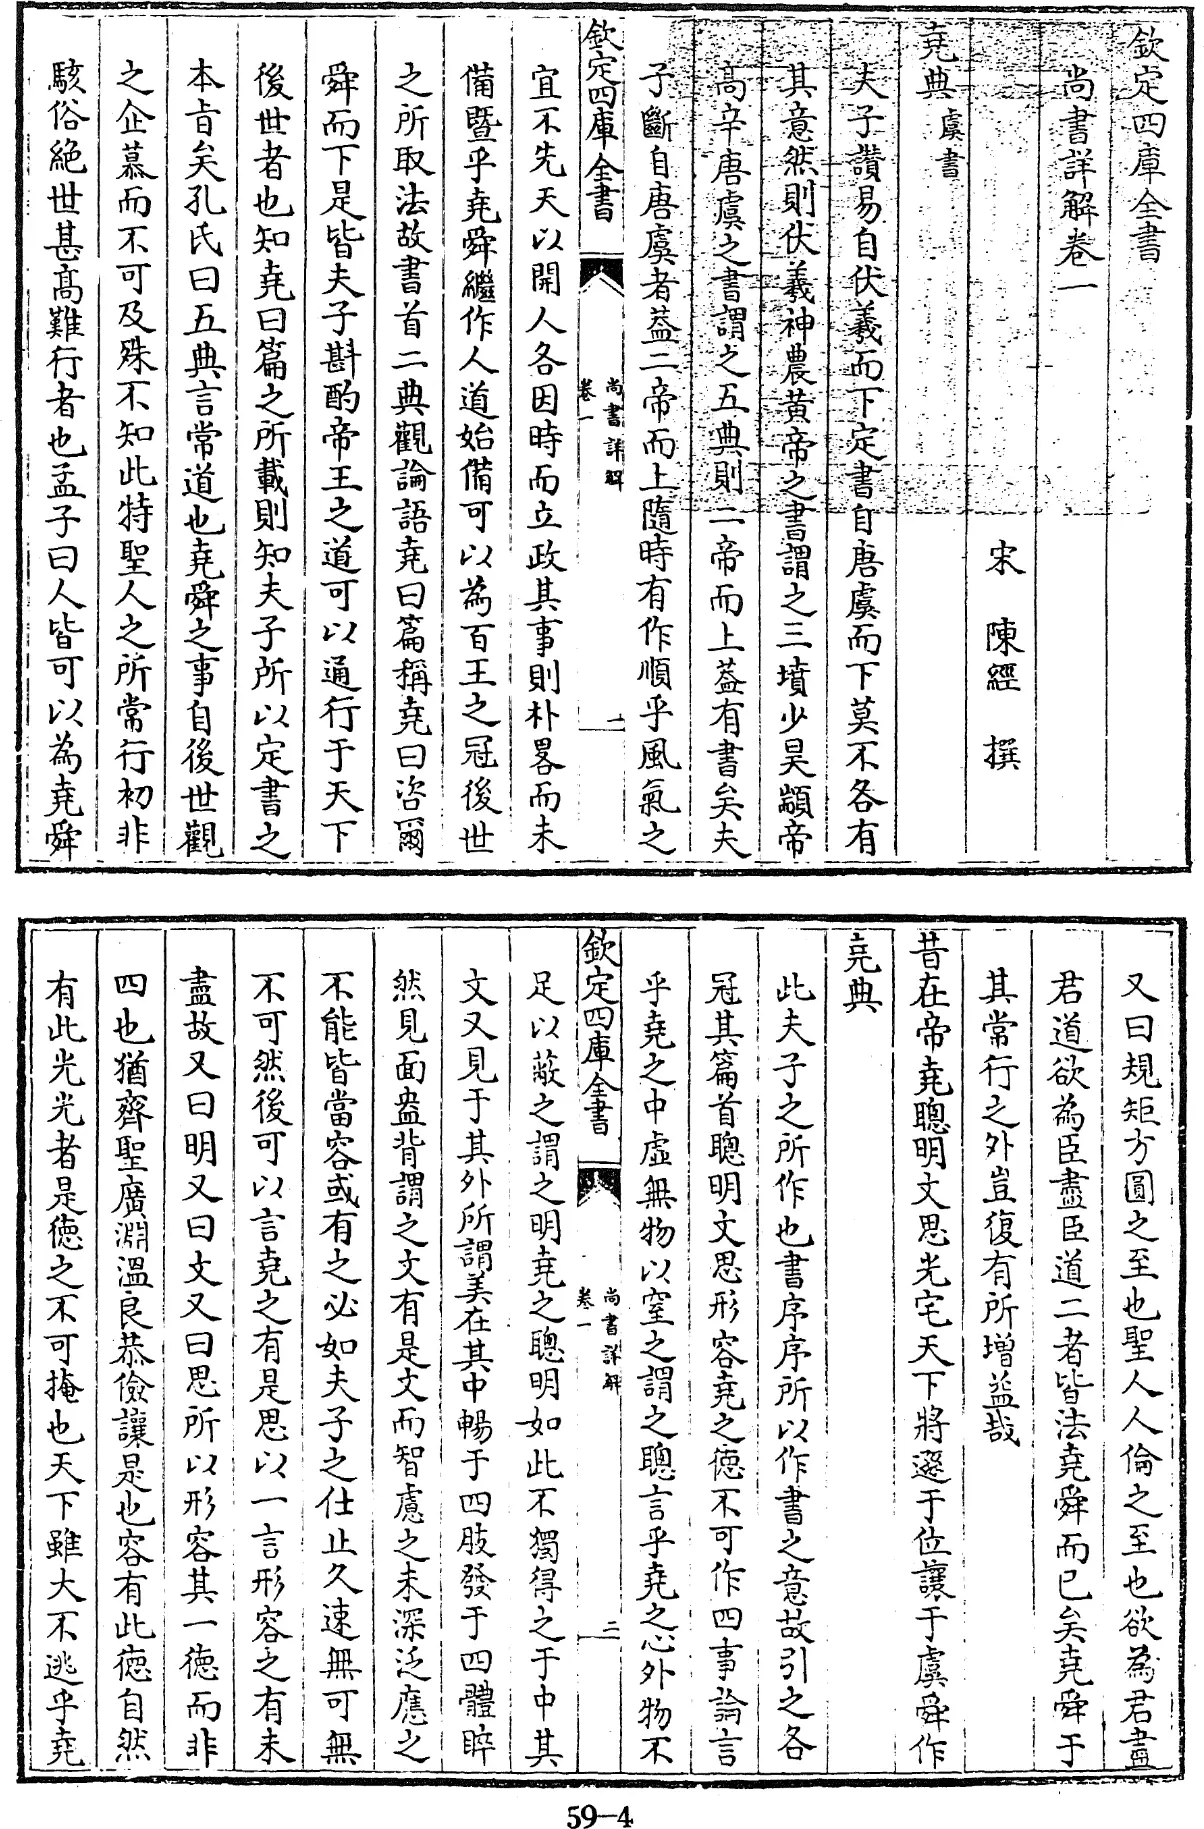 欽定四庫全書
尚書詳解卷一
宋 陳經 撰
堯典 虞書
夫子讚易自伏羲而下定書自唐虞而下莫不各有
其意然則伏羲神農黄帝之書謂之三墳少昊顓帝
髙辛唐虞之書謂之五典則二帝而上葢有書矣夫
子斷自唐虞者葢二帝而上隨時有作順乎風氣之
欽定四庫全書
尚書詳解
卷一
二
宜不先天以開人各因時而立政其事則朴畧而未
備暨乎堯舜繼作人道始備可以為百王之冠後世
之所取法故書首二典觀論語堯曰篇稱堯曰咨爾
舜而下是皆夫子斟酌帝王之道可以通行于天下
後世者也知堯曰篇之所載則知夫子所以定書之
本旨矣孔氏曰五典言常道也堯舜之事自後世觀
之企慕而不可及殊不知此特聖人之所常行初非
駭俗絶世甚髙難行者也孟子曰人皆可以為堯舜
又曰規矩方圓之至也聖人人倫之至也欲為君盡
君道欲為臣盡臣道二者皆法堯舜而已矣堯舜于
其常行之外豈復有所增益哉
昔在帝堯聰明文思光宅天下將遜于位讓于虞舜作
堯典
此夫子之所作也書序序所以作書之意故引之各
冠其篇首聰明文思形容堯之徳不可作四事論言
乎堯之中虛無物以窒之謂之聰言乎堯之心外物不
欽定四庫全書
尚書詳解
卷一
三
足以蔽之謂之明堯之聰明如此不獨得之于中其
文又見于其外所謂美在其中暢于四肢發于四體睟
然見面盎背謂之文有是文而智慮之未深泛應之
不能皆當容或有之必如夫子之仕止久速無可無
不可然後可以言堯之有是思以一言形容之有未
盡故又曰明又曰文又曰思所以形容其一徳而非
四也猶齊聖廣淵溫良恭儉讓是也容有此徳自然
有此光光者是徳之不可掩也天下雖大不逃乎堯
59-4